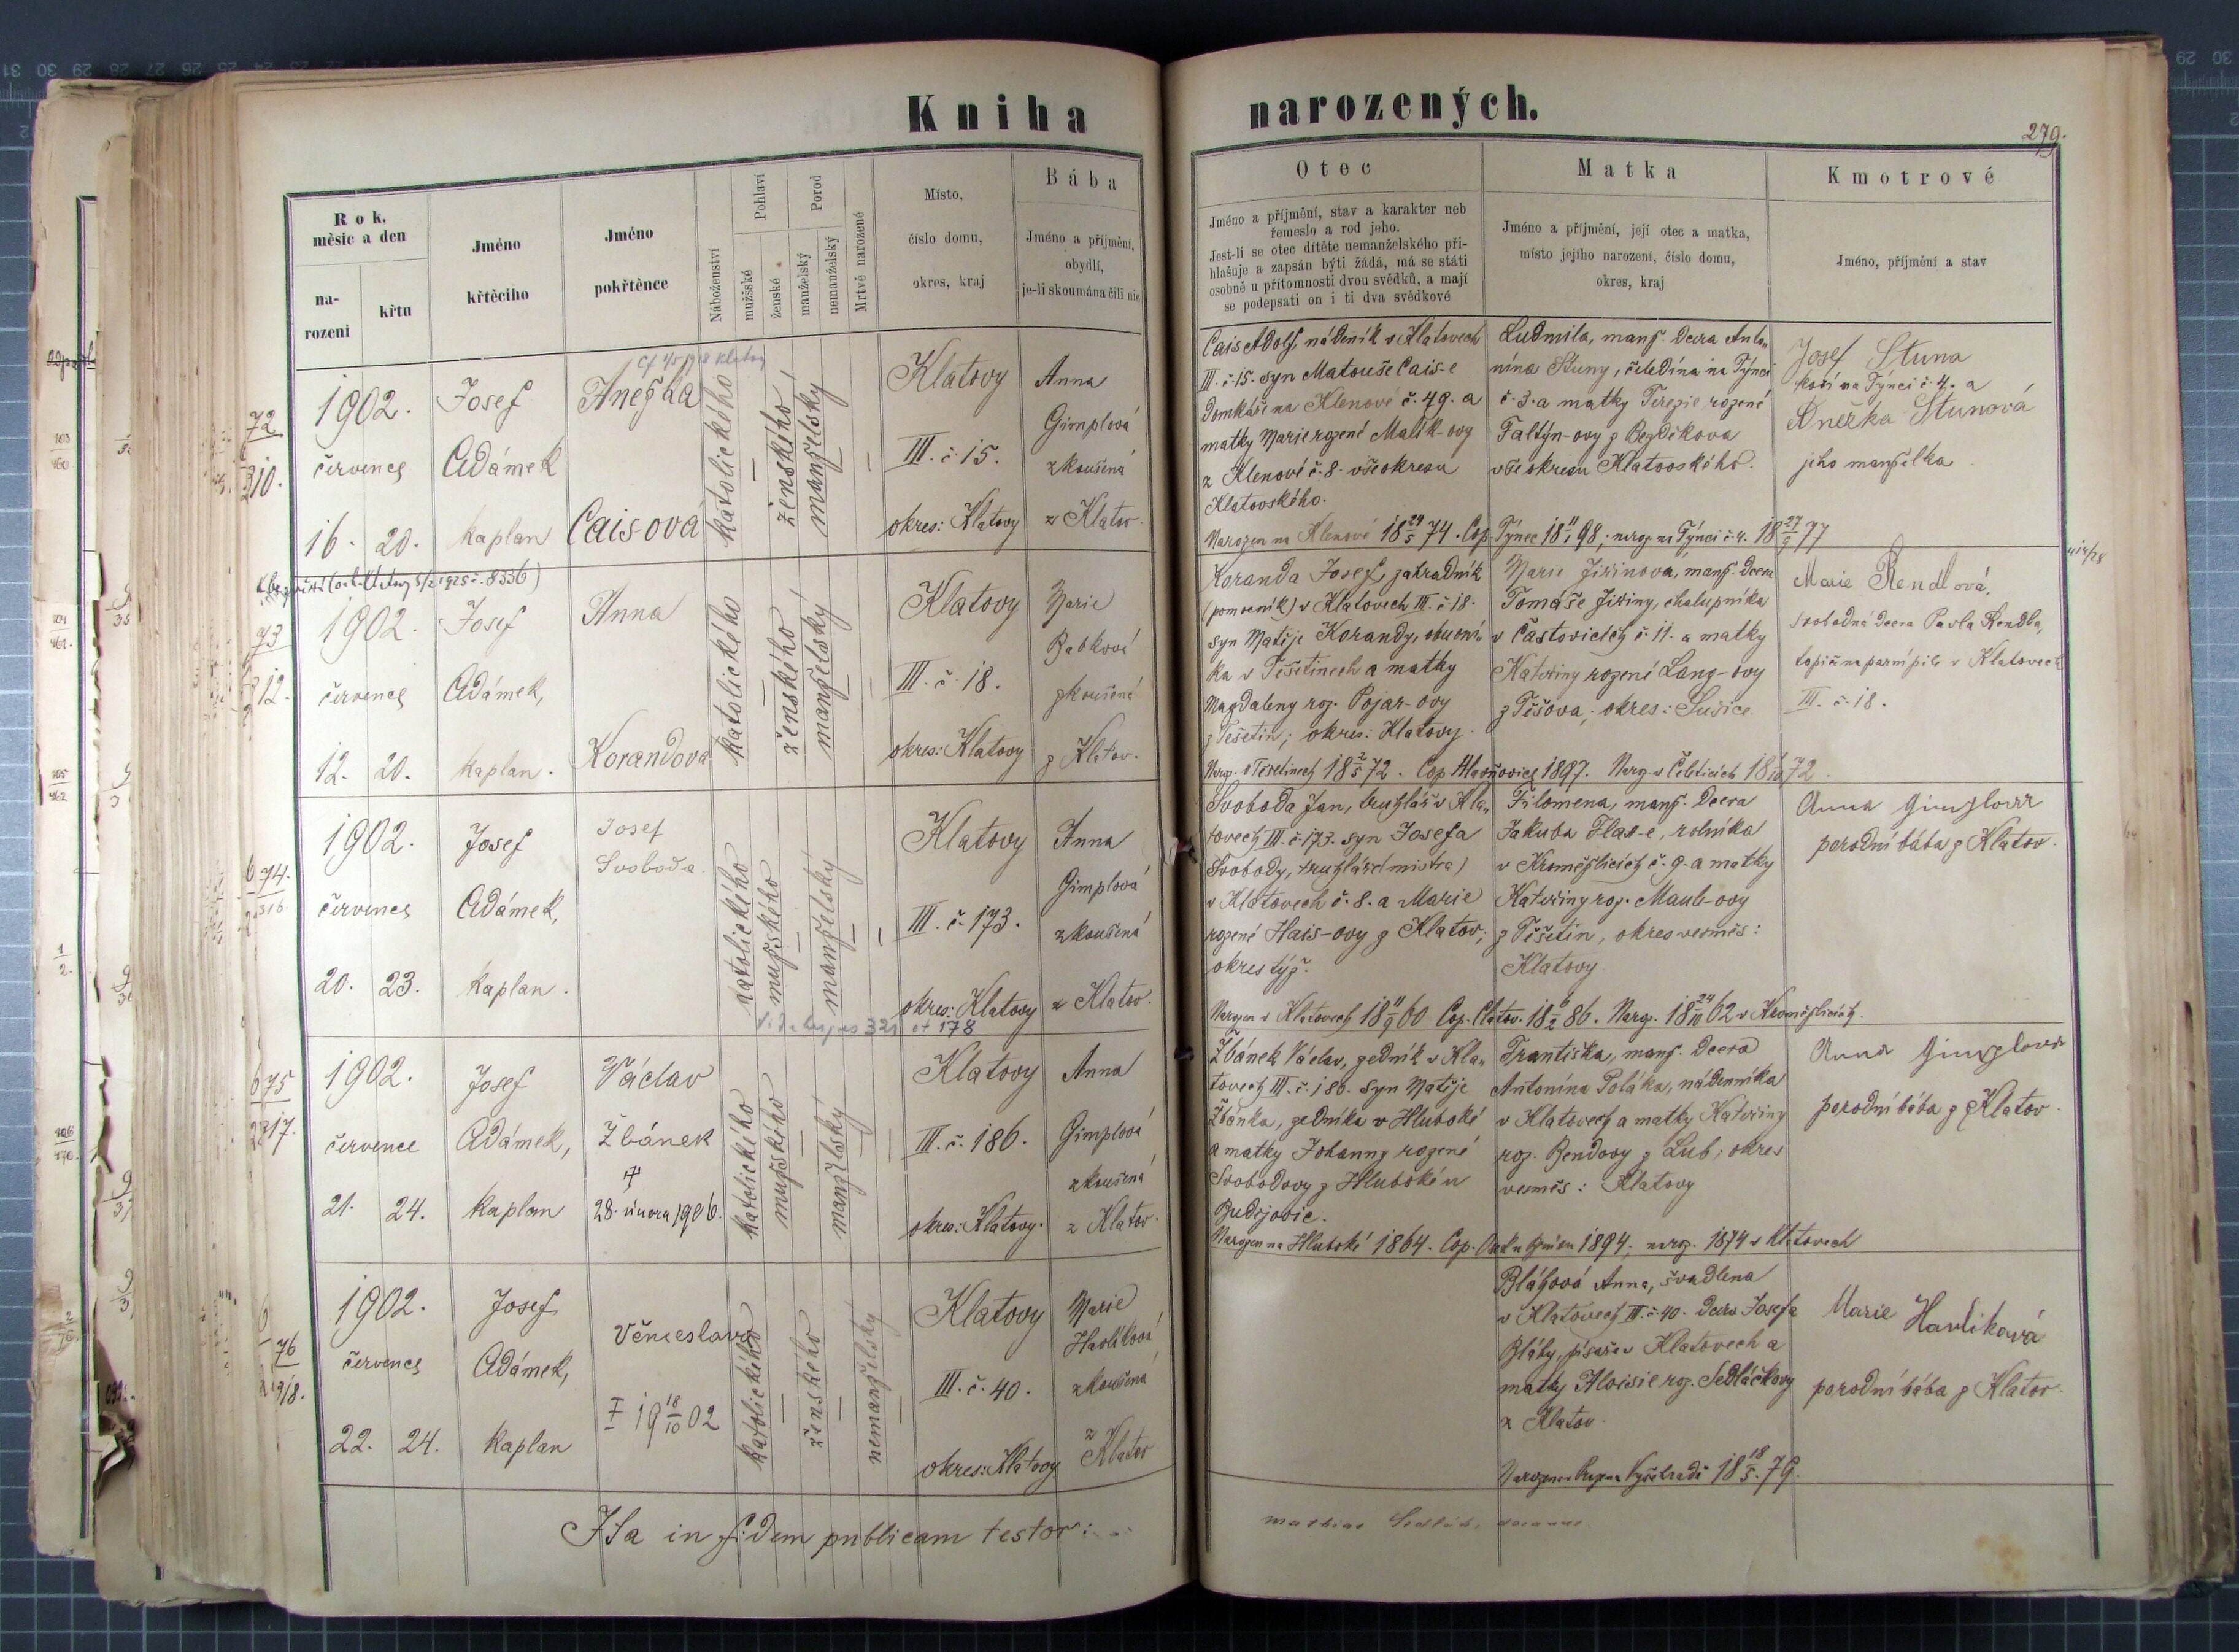 Kniha narozených.
279.
Rok, měsíc a den
narození
křtu
Jméno křtěcího
Jméno pokřtěnce
Náboženství
Pohlaví
mužské
ženské
Porod
manželský
nemanželský
Mrtvě narozené
Místo,
číslo domu,
okres, kraj
Bába
Jméno a příjmění,
obydlí,
je-li zkoumána čili nic
Otec
Jméno a příjmění, stav a karakter neb
řemeslo a rod jeho.
Jest-li se otec dítěte nemanželského při-
hlašuje a zapsán býti žádá, má se státi
osobně u přítomnosti dvou svědků, a mají
se podepsati on i ti dva svědkové
Matka
Jméno a příjmění, její otec a matka,
místo jejího narození, číslo domu,
okres, kraj
Kmotrové
Jméno, příjmění a stav
72
210.
1902.
července
16. 20.
Josef
Adámek
kaplan
Anežka
Caisová
katolického
ženského
manželský
Klatovy
III. č. 15.
okres: Klatovy
Anna
Gimplová
zkoušená
z Klatov.
Cais Adolf, nádeník v Klatovech
III. č. 15. syn Matouše Cais-e
domkáře na Klenové č. 49. a
matky Marie rozené Malík-ovy
z Klenové č. 8. vše okresu
Klatovského.
Narozen na Klenové 18 29/5 74. Cop. Týnec 18 11/1 98; naroz. na Týnci č. 4. 18 27/9 77
Ludmila, manž. dcera Anto-
nína Stuny, čeledína na Týnci
č. 3. a matky Terezie rozené
Faltýn-ovy z Bezděkova
vše okresu Klatovského.
Josef Stuna
na Týnci č. 4. a
Anežka Stunová
jeho manželka
73
212.
1902.
července
12. 20.
Josef
Adámek,
kaplan.
Anna
Korandova
katolického
ženského
manželský
Klatovy
III. č. 18.
okres: Klatovy
Marie
zkoušená
z Klatov.
Koranda Josef, zahradník
(pomocník) v Klatovech III. č. 18.
syn Matěje Korandy,
ka v Těšetinech a matky
Magdaleny roz. Pojar-ovy
z Tešetin; okres: Klatovy.
Naroz. v Tešetinech 18 2/5 72. Cop. 1897. Naroz. v 72.
Marie Jiřinova, manž. dcera
Tomáše Jiřiny, chalupníka
v Častovicích č. 11. a matky
Kateřiny rozené Lang-ovy
z Těšova; okres: Sušice
Marie Rendlová,
svobodná dcera Pavla Rendla,
topiče na parní pile v Klatovech
III. č. 18.
74.
316
1902.
července
20. 23.
Josef
Adámek,
kaplan.
Josef
Svoboda
katolického
mužského
manželský
Klatovy
III. č. 173.
okres: Klatovy
Anna
Gimplová
zkoušená
z Klatov.
Svoboda Jan, truhlář v Kla-
tovech III. č. 173. syn Josefa
Svobody, truhláře (mistra)
v Klatovech č. 8. a Marie
rozené Hais-ovy z Klatov;
okres týž.
Narozen v Klatovech 18 11/9 60 Cop. Clatov. 18 6/2 86. Naroz. 18 24/10 62 v Kroměžlicích.
Filomena, manž. dcera
Jakuba Flas-e, rolníka
v Kroměžlicích č. 9. a matky
Kateřiny roz. Maul-ovy
z Těšetin, okres vesměs:
Klatovy
Anna Gimplova
porodní bába z Klatov.
75
217.
1902.
července
21. 24.
Josef
Adámek,
kaplan
Václav
Žbánek
†
28. února 1906.
katolického
mužského
manželský
Klatovy
III. č. 186.
okres: Klatovy.
Anna
Gimplová
zkoušená
z Klatov.
Žbánek Václav, zedník v Kla-
tovech III. č. 186. syn Matěje
Žbánka, zedníka v Hluboké
a matky Johanny rozené
Svobodovy z Hluboké u
Budějovic.
Narozen na Hluboké 1864. Cop. 1894; naroz. 1874 v Klatovech
Františka, manž. dcera
Antonína Poláka, nádenníka
v Klatovech a matky Kateřiny
roz. Bendovy z Lub; okres
vesměs: Klatovy
Anna Gimplova
porodní bába z Klatov.
76
218.
1902.
července
22. 24.
Josef
Adámek,
kaplan
Věnceslava
† 19 18/10 02
katolického
ženského
nemanželský
Klatovy
III. č. 40.
okres: Klatovy
Marie
Havlíková
zkoušená
z Klatov
Bláhová Anna, švadlena
v Klatovech III. č. 40. dcera Josefa
Bláhy, písaře v Klatovech a
matky Aloisie roz. Sedláčkovy
z Klatov.
Narozena Vyšehradě 18 18/5 79.
Marie Havlíková
porodní bába z Klatov.
Ita in fidem publicam testor: